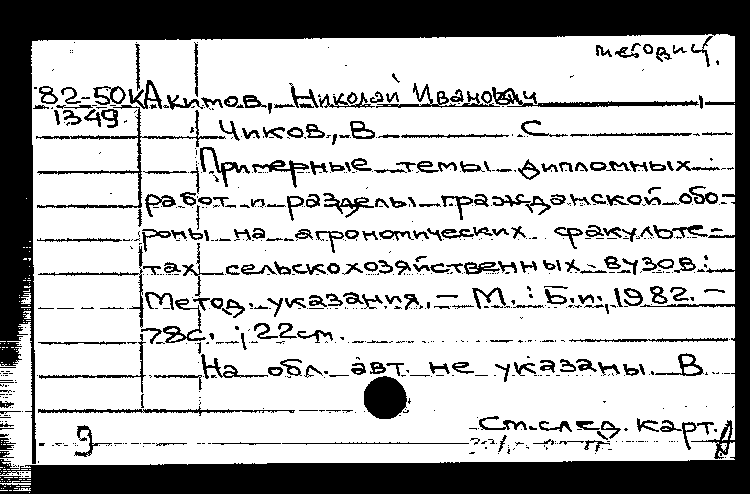 методич.
82-50К Акимов, Николай Иванович
1349
Чиков, В С
Примерные темы дипломных
работ и разделы гражданской обо-
роны на агрономических факульте-
тах сельскохозяйственных вузов:
Метод. указания. - М. : Б.и., 1982. -
78с. ; 22см.
На обл. авт. не указаны. В
См. след. карт.
9